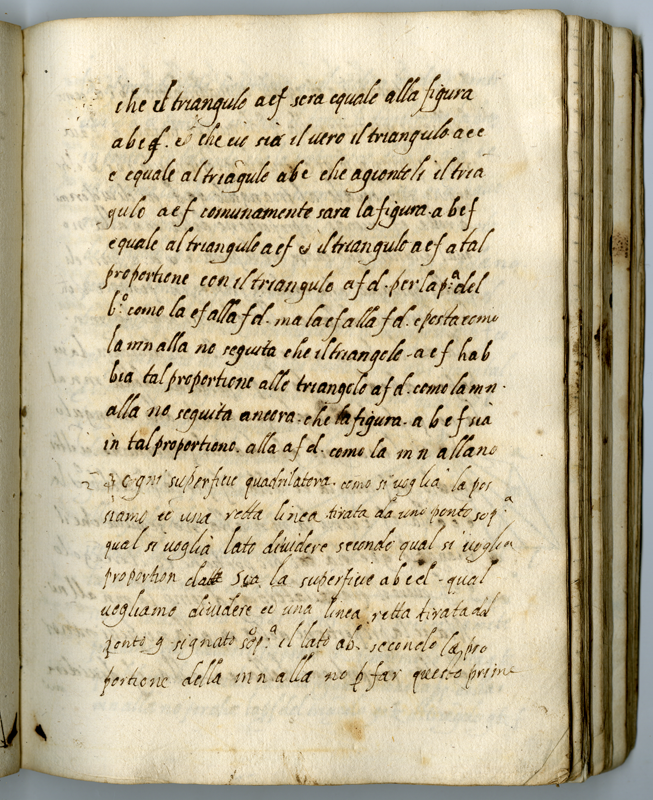 che il triangulo aef sera equale alla figura
abef. che cio sia il vero il triangulo aee
e equale al triãgulo abe che agiontoli il tria
gulo aef comunamente sara la figura. abef
equale al triangulo aef e il triangulo aef a tal
proportione con il triangulo afd. per la p.ª del
6.º como la ef alla fd. ma la ef alla fd. e posta como
la mn alla no seguita che il triangolo. aef hab
bia tal proportione alle triangolo afd. como la mn.
alla no seguita ancora. che la figura. abef sia
in tal proportiono. alla afd. como la mn alla no
2ª ogni superficie quadrilatera. como si voglia la pos
siamo cõ una retta linea tirata da uno ponto sop.ª
qual si voglia lato dividere secondo qual si voglia
proportion data Sia la superficie abcd. qual
vogliamo dividere cõ una linea retta tirata dal
ponto g signato sop.ª il lato ab. secondo la pro
portione della mn alla no p far questo prima